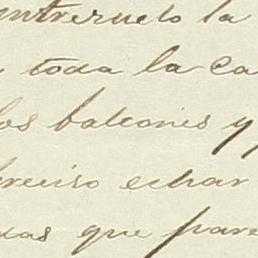 entresuelo la
toda la ca
los balcones y p
preciso echar
que pare